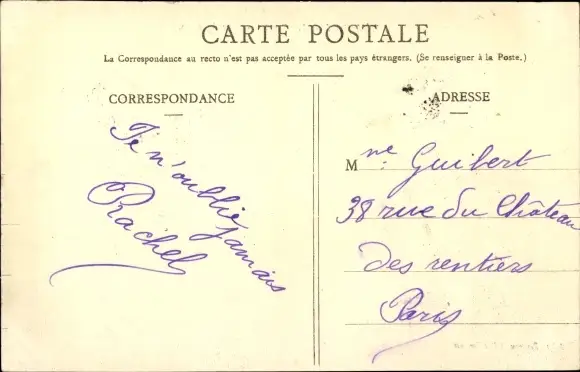 CARTE POSTALE
La Correspondance au recto n'est pas acceptée par tous les pays étrangers. (Se renseigner à la Poste.)
CORRESPONDANCE
Je n'oublie jamais
Rachel
ADRESSE
Mme: Guibert
38 rue du Château
des rentiers
Paris